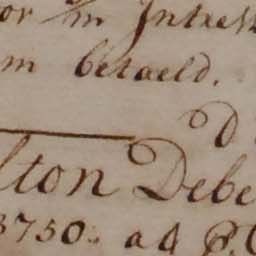 or m Intres
m betaeld.
D
lton Debe
3750. ad P.